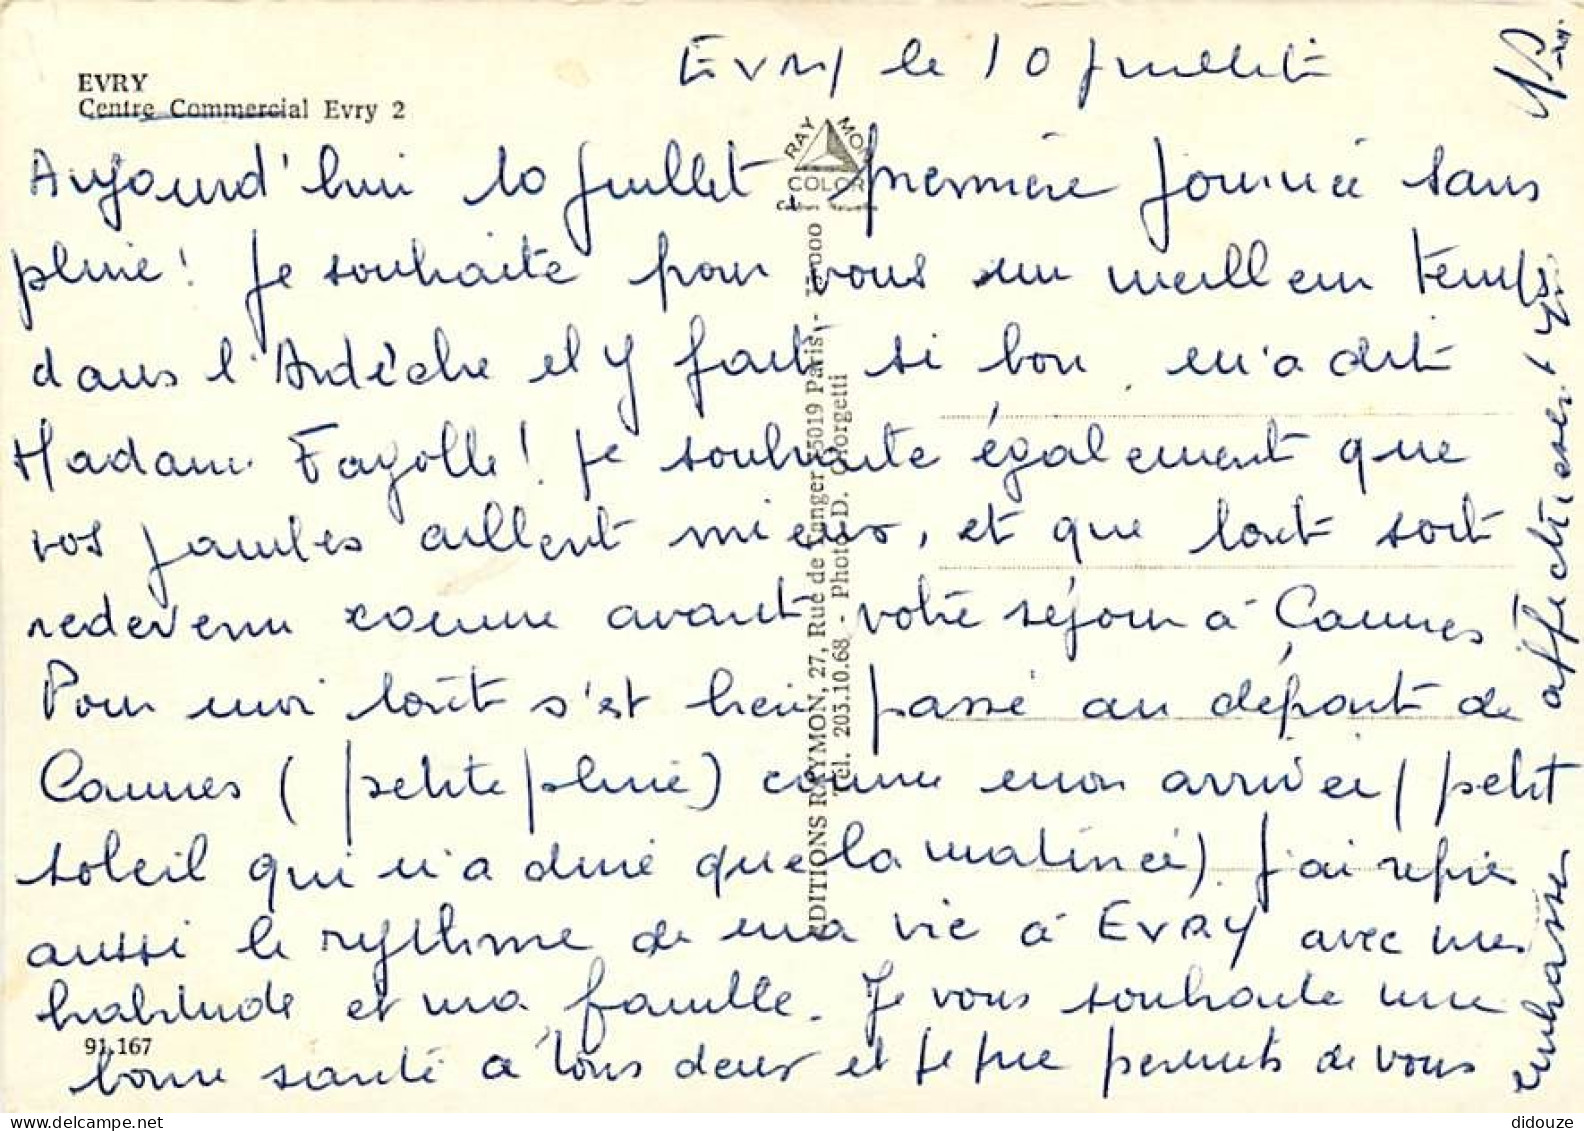 EVRY
Centre Commercial Evry 2
Evry le 10 juillet
Aujourd'hui 10 juillet première journée sans
pluie! Je souhaite pour vous un meilleur temps
dans l'Ardèche el y fait si bon m'a dit
Madame Fayolle! Je souhaite également que
vos jambes aillent mieux, et que tout soit
redevenu comme avant votre séjour à Cannes!
Pour moi tout s'est bien passé au départ de
Cannes (petite pluie) comme mon arrivée (petit
soleil qui n'a duré que la matinée). J'ai repris
aussi le rythme de ma vie à EVRY avec mes
habitude et ma famille. Je vous souhaite une
bonne santé à tous deux et je me permets de vous
embrasser affectueusement
RAYMON
COLOR
EDITIONS RAYMON, 27, Rue de 75019 Paris
Tél. 203.10.68 - Photo D. Giorgetti
91.167
didouze